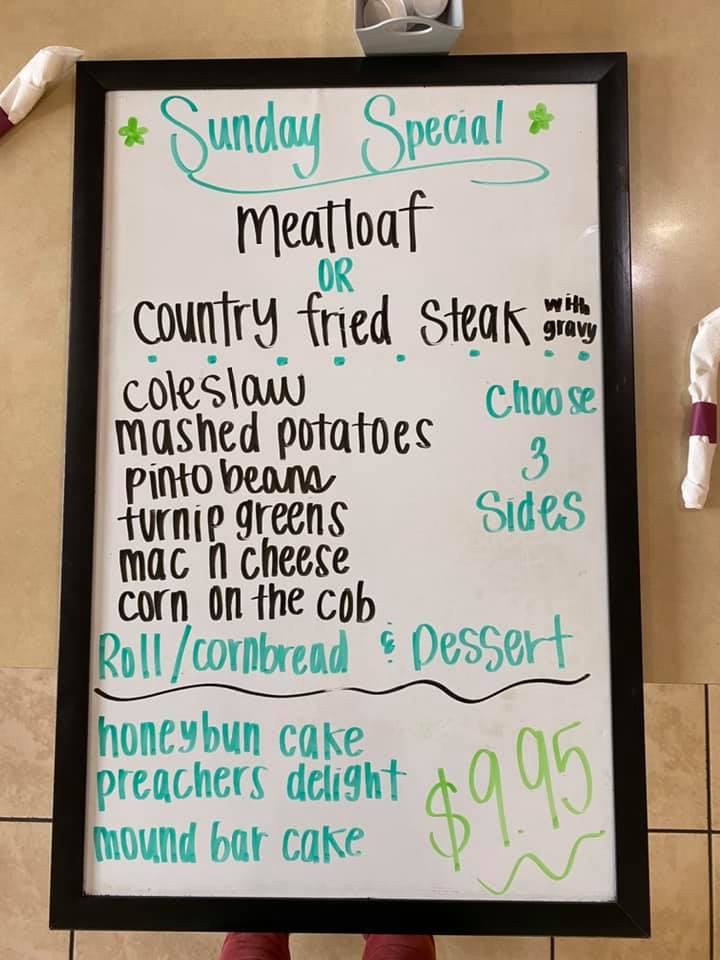 Sunday Special
Meatloaf
OR
Country fried Steak with gravy
coleslaw
mashed potatoes
pinto beans
turnip greens
mac n cheese
corn on the cob
Choose
3
Sides
Roll/cornbread & Dessert
honeybun cake
preachers delight
mound bar cake
$9.95